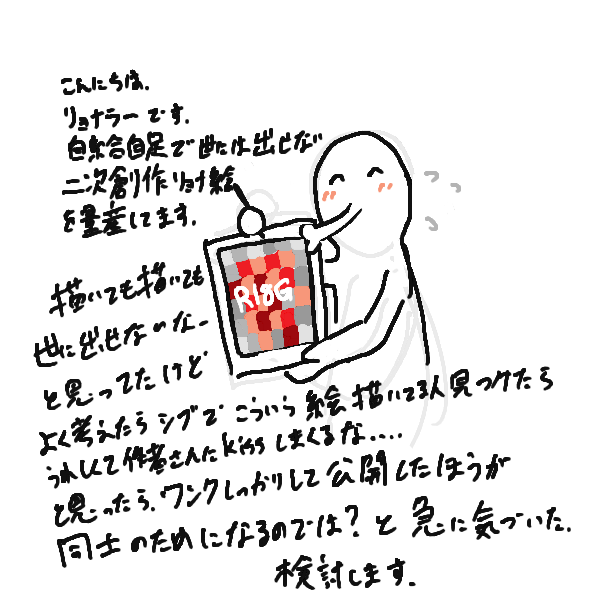 こんにちは。
リョナラーです。
自給自足で世には出せない
二次創作リョナ絵
を量産してます。
R18G
描いても描いても
世に出せないのなー
と思ってたけど
よく考えたらシブでこういう絵描いてる人見つけたら
うれしくて作者さんにkissしまくるな....
と思ったら、ワンクしっかりして公開したほうが
同士のためになるのでは?と急に気づいた。
検討します。